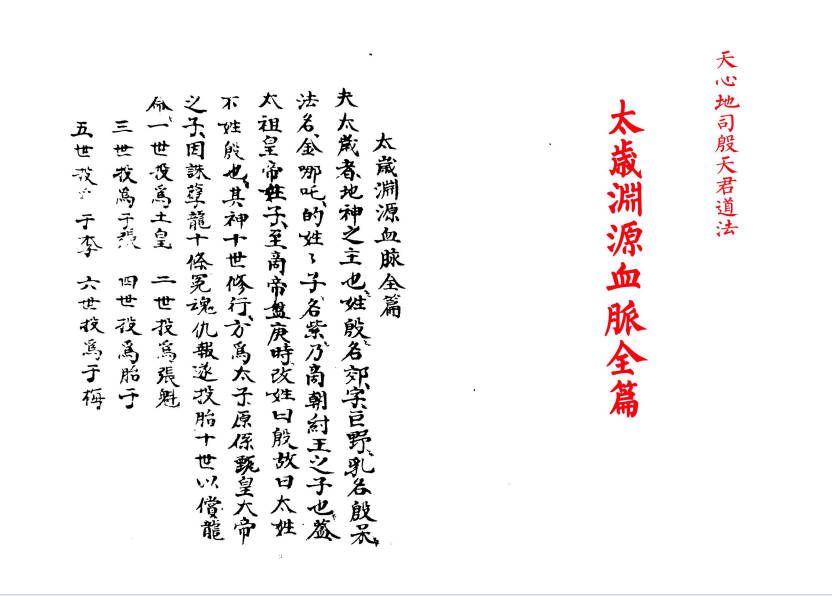 天心地司殷天君道法
太歲淵源血脈全篇
太歲淵源血脉全篇
夫太歲者地神之主也姓殷名郊字巨野乳名殷呆
法名金哪吒的姓々子名紫乃商朝紂王之子也盖
太祖皇帝姓子至商帝盤庚時改姓曰殷故曰太姓
不姓殷也其神十世修行方為太子原係甄皇大帝
之子因誅孽龍十條冤魂仇報遂投胎十世以償龍
命一世投為土皇 二世投為張魁
三世投為于張 四世投為胎于
五世投為于李 六世投為于梅